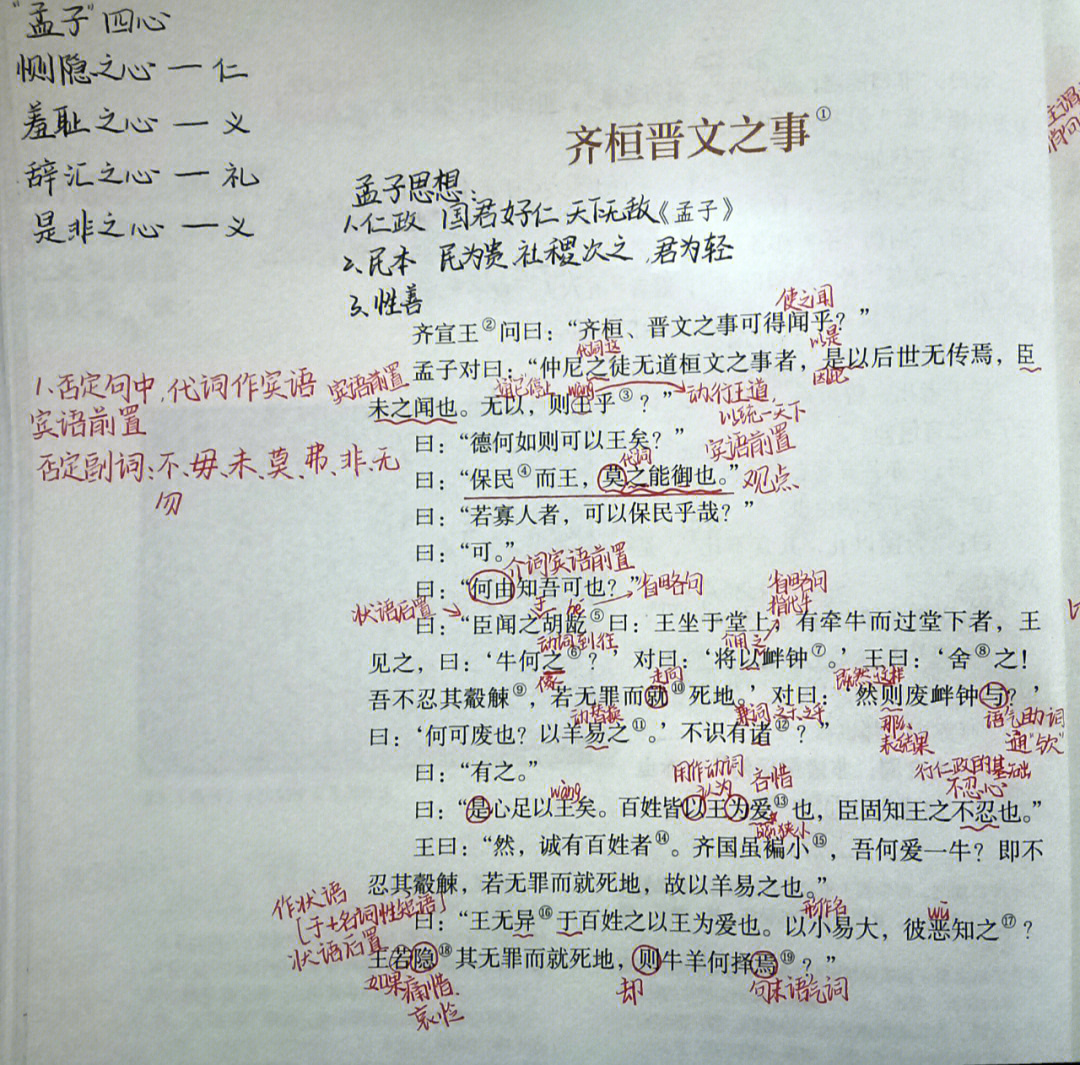 "孟子"四心
恻隐之心 — 仁
羞耻之心 — 义
辞汇之心 — 礼
是非之心 — 义
齐桓晋文之事①
孟子思想：
1.仁政 国君好仁 天下无敌《孟子》
2.民本 民为贵,社稷次之,君为轻
3.性善
使之闻
齐宣王②问曰：“齐桓、晋文之事可得闻乎？”
代词这 以是
孟子对曰：“仲尼之徒无道桓文之事者，是以后世无传焉，臣
1.否定句中,代词作宾语 宾语前置
wàng 动,行王道, 因此
未之闻也。无以，则王乎③？”
宾语前置 以统一天下
曰：“德何如则可以王矣？”
否定副词：不、毋、未、莫、弗、非、无
勿
代词 宾语前置
曰：“保民④而王，莫之能御也。” 观点
曰：“若寡人者，可以保民乎哉？”
曰：“可。”
介词宾语前置
曰：“何由知吾可也？” 省略句 省略句
状语后置 于 hé 指代牛
曰：“臣闻之胡龁⑤曰：王坐于堂上，有牵牛而过堂下者，王
动词到,往 用之
见之，曰：‘牛何之⑥？’对曰：‘将以衅钟⑦。’王曰：‘舍⑧之！
走向 既然这样
吾不忍其觳觫⑨，若无罪而就⑩死地。’对曰：‘然则废衅钟与？’
动替换 兼词 之于 之乎 那么 表结果 语气助词 通“欤”
曰：‘何可废也？以羊易之⑪。’不识有诸⑫？”
曰：“有之。”
用作动词 认为 吝惜 行仁政的基础 不忍心
wàng
曰：“是心足以王矣。百姓皆以王为爱⑬也，臣固知王之不忍也。”
狭小
王曰：“然，诚有百姓者⑭。齐国虽褊小⑮，吾何爱一牛？即不
忍其觳觫，若无罪而就死地，故以羊易之也。”
作状语
[于+名词性短语]
状语后置
形作名 wū
曰：“王无异⑯于百姓之以王为爱也。以小易大，彼恶知之⑰？
王若隐⑱其无罪而就死地，则牛羊何择焉⑲？”
如果 痛惜. 哀怜 却 句末语气词